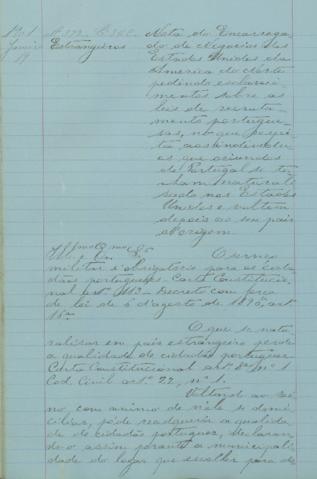 1901
Janeiro
19
Estrangeiros
Nota do Encarrega
do de Negocios dos
Estados Unidos da
America do Norte
pedindo esclareci
mentos sobre as
leis de recruta
mento portugue
sas, no que respei
ta aos individu
os que oriundos
de Portugal se te
nham naturali
sado nos Estados
Unidos e voltem
depois ao seu paiz
de origem.
Illmo Exmo Sr.
O serviço
militar é obrigatorio para os cida
dãos portuguezes Carta Constitucio
nal artº 113º Decreto com força
de lei de 6 d'agosto de 1896, artº
O que se natu
ralisar em paiz estrangeiro perde
a qualidade de cidadão portuguez
Carta Constitucional artº 8º nº 1
Cod. Civil artº 22, nº 1.
Voltando ao rei
no, com animo de n'elle se domi
ciliar, póde readquirir a qualida
de de cidadão portuguez, declaran
do-o assim perante a municipali
dade do logar que escolher para do